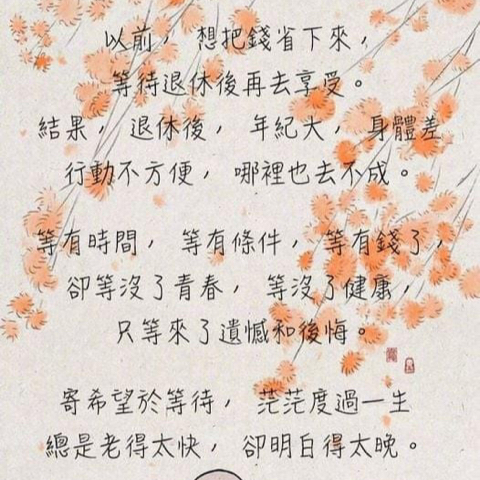 以前， 想把錢省下來，
等待退休後再去享受。
結果， 退休後， 年紀大， 身體差
行動不方便， 哪裡也去不成。
等有時間， 等有條件， 等有錢了，
卻等沒了青春， 等沒了健康，
只等來了遺憾和後悔。
寄希望於等待， 茫茫度過一生
總是老得太快， 卻明白得太晚。